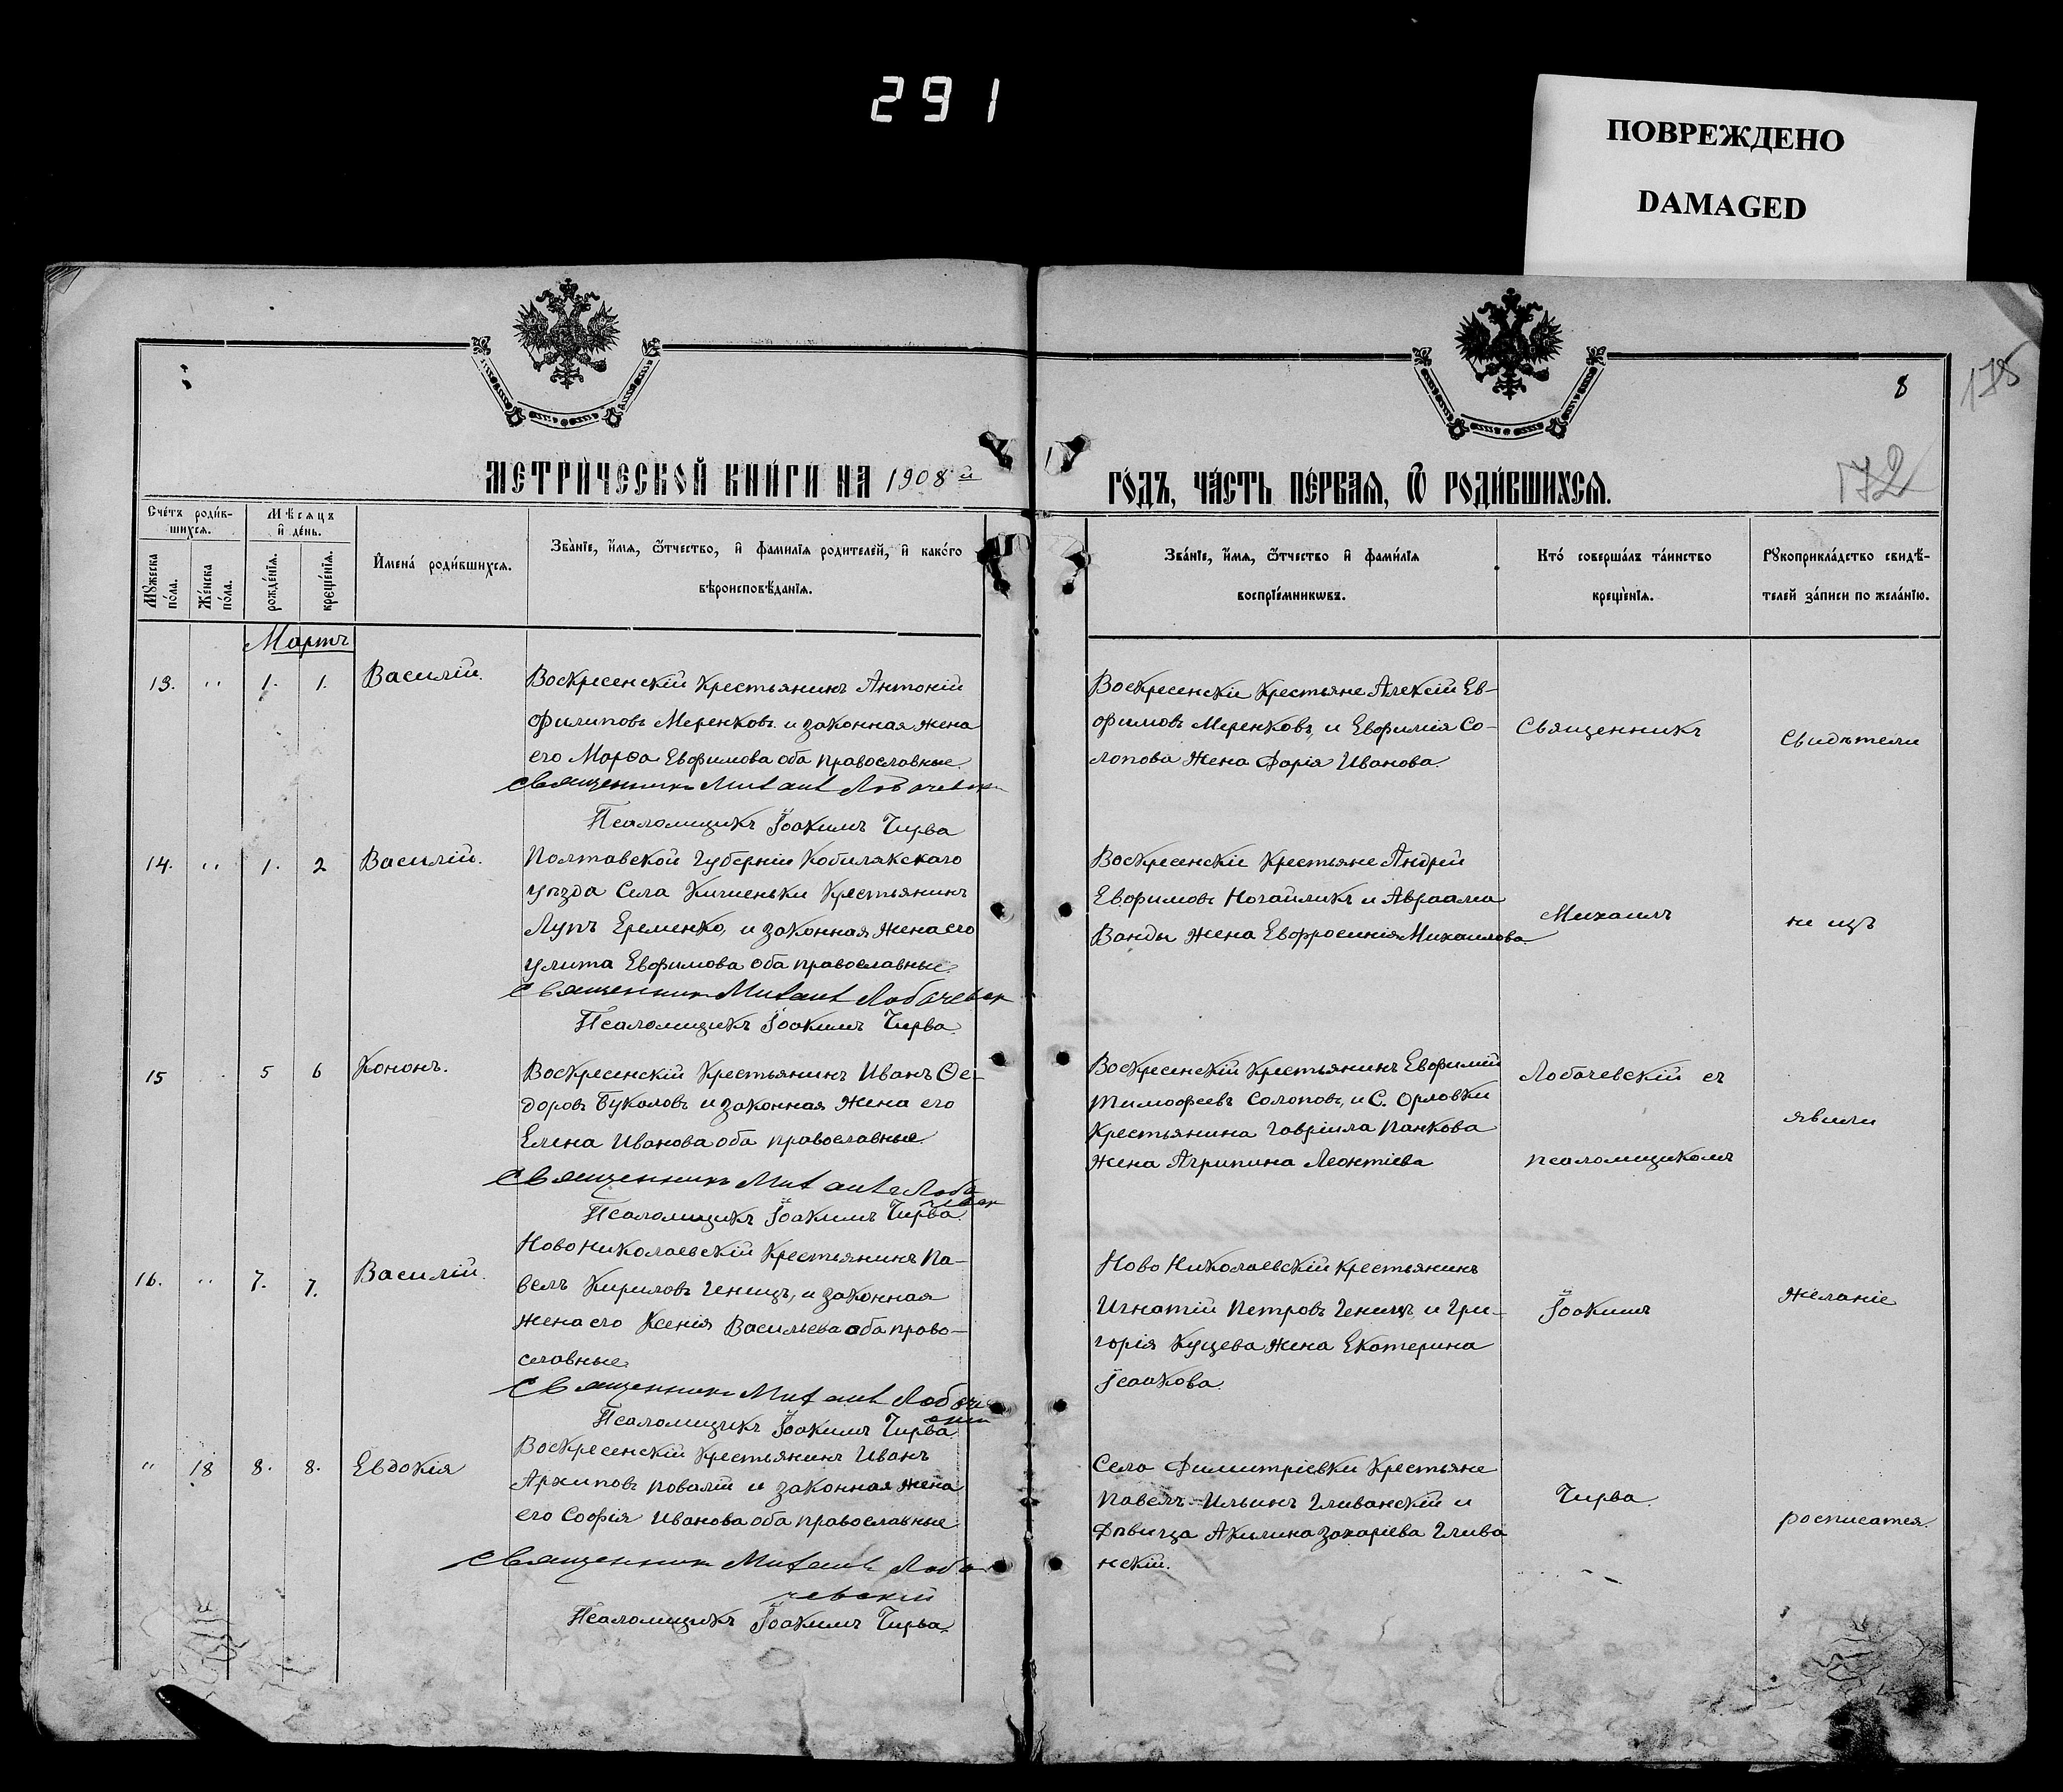 291
ПОВРЕЖДЕНО
DAMAGED
8
178
172
МЕТРИ́ЧЕСКОЙ КНИ́ГИ НА 1908й
ГО́ДЪ, ЧА́СТЬ ПЕ́РВАѦ, Ѽ РОДИ́ВШИХСѦ.
Сче́тъ роди́в-
шихсѧ.
Мѣ́сѧцъ
и҆ де́нь.
Мꙋ́жеска
по́ла.
Же́нска
по́ла.
рожде́нїѧ.
креще́нїѧ.
И҆мена̀ роди́вшихсѧ.
Зва́нїе, и҆́мѧ, ѻ҆́тчество, и҆ фами́лїѧ роди́телей, и҆ како́го
вѣроисповѣ́данїѧ.
Зва́нїе, и҆́мѧ, ѻ҆́тчество и҆ фами́лїѧ
воспрїе́мникѡвъ.
Кто́ соверша́лъ та́инство
креще́нїѧ.
Рꙋкоприкла́дство свидѣ́-
телей за́писи по жела́нїю.
Мартъ
13. " 1. 1. Василій.
Воскресенскій крестьянинъ Антоній
Филиповъ Меренковъ и законная жена
его Марѳа Евфимова оба православные.
Священникъ Михаилъ Лобачевскій
Псаломщикъ Іоакимъ Чирва
Воскресенскіе крестьяне Алексій Ев-
фимовъ Меренковъ, и Евфимія Со-
лопова жена Дарія Иванова.
Священникъ
Свидѣтели
14. " 1. 2 Василій.
Полтавской губерніи Кобилякскаго
уѣзда Села Кишеньки крестьянинъ
Лупъ Еременко, и законная жена его
Улита Евфимова оба православные.
Священникъ Михаилъ Лобачевск
Псаломщикъ Іоакимъ Чирва.
Воскресенскіе крестьяне Андрей
Евфимовъ Ногайликъ и Авраама
Ванды жена Евфросинія Михаилова.
Михаилъ
не изъ
15 5 6 Кононъ.
Воскресенскій крестьянинъ Иванъ Ѳе-
доровъ Букаловъ и законная жена его
Елена Иванова оба православные.
Священникъ Михаилъ Лоба
чевск
Псаломщикъ Іоакимъ Чирва.
Воскресенскій крестьянинъ Евфимій
Тимофеевъ Солоповъ, и С. Орловки
крестьянина Гавріила Панкова
жена Агрипина Леонтіева
Лобачевскій съ
псаломщикомъ
явили
16. " 7. 7. Василій.
Ново Николаевскій крестьянинъ Па-
велъ Кириловъ Геницъ, и законная
жена его Ксенія Васильева оба право-
славные.
Священникъ Михаилъ Лобаче
Псаломщикъ Іоакимъ Чирва.
Ново Николаевскій крестьянинъ
Игнатій Петровъ Геницъ и Гри-
горія Куцева жена Екатерина
Ісаакова.
Іоакимъ
желаніе
" 18 8. 8. Евдокія
Воскресенскій крестьянинъ Иванъ
Архиповъ Повалій и законная жена
его Софія Иванова оба православные
Священникъ Михаилъ Лоба
чевскій
Псаломщикъ Іоакимъ Чирва.
Села Димитріевки крестьяне
Павелъ Ильинъ Гливанскій и
Дѣвица Акилина Захаріева Глива
нскій.
Чирва.
росписатся.